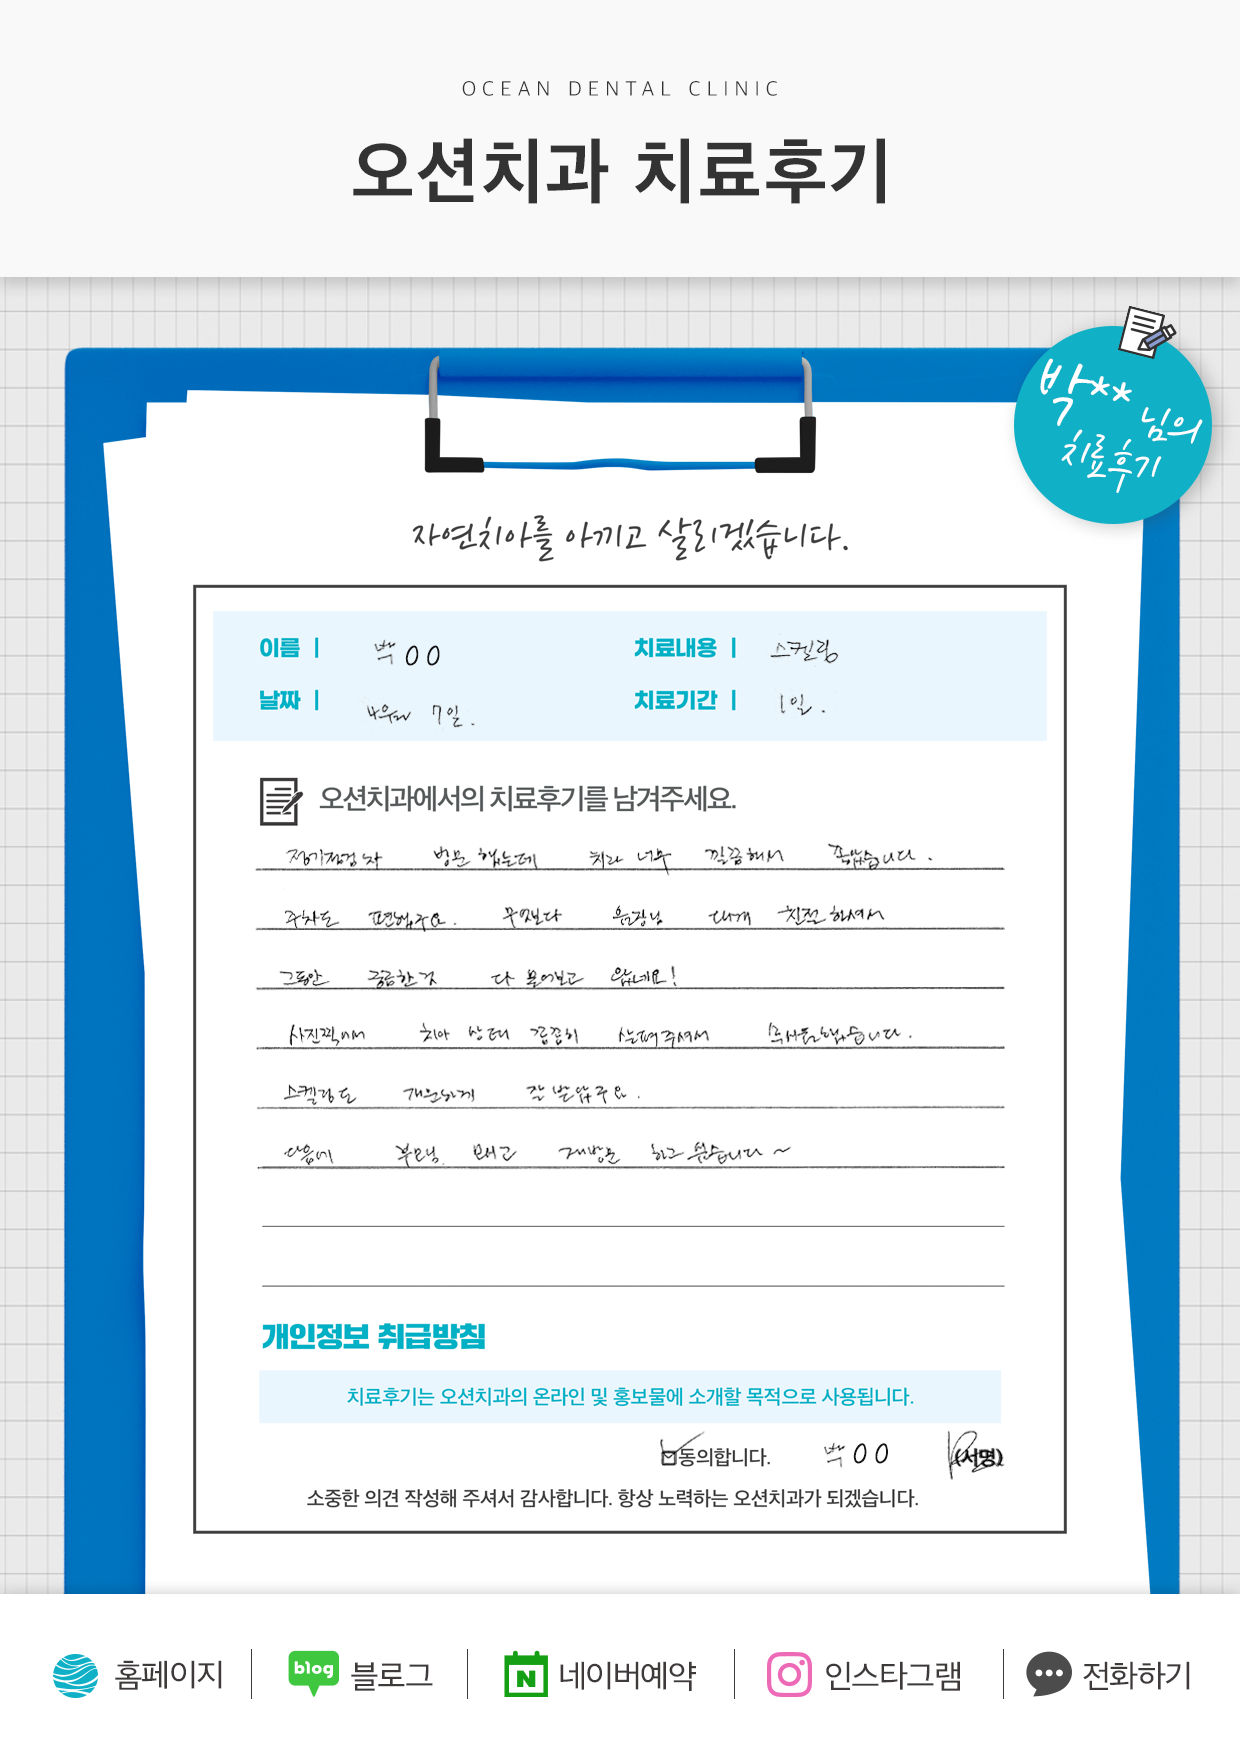 OCEAN DENTAL CLINIC
오션치과 치료후기
박** 님의
치료후기
자연치아를 아끼고 살리겠습니다.
이름 | 박 0 0
치료내용 | 스켈링
날짜 | 7일.
치료기간 | 1일.
오션치과에서의 치료후기를 남겨주세요.
정기점검 차 방문 했는데 치과 너무 깔끔해서 좋았습니다.
주차도 편했구요. 무엇보다 원장님 되게 친절하셔서
그동안 궁금한 것 다 물어보고 왔네요!
사진찍어서 치아 상태 꼼꼼히 살펴주셔서 했습니다.
스켈링도 개운하게 잘 받았구요.
다음에 부모님 모시고 재방문 하고 싶습니다 ~
개인정보 취급방침
치료후기는 오션치과의 온라인 및 홍보물에 소개할 목적으로 사용됩니다.
동의합니다. 박 0 0 (서명)
소중한 의견 작성해 주셔서 감사합니다. 항상 노력하는 오션치과가 되겠습니다.
홈페이지 | blog 블로그 | N 네이버예약 | 인스타그램 | 전화하기